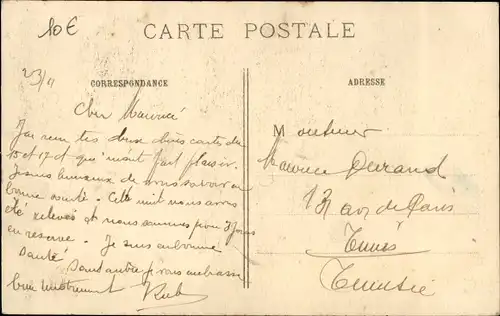 10€
CARTE POSTALE
23/11
CORRESPONDANCE
ADRESSE
Cher Maurice
J'ai reçu tes deux cartes du
15 et 17 et qui m'ont fait plaisir.
Je suis heureux de vous savoir en
bonne santé. Cette nuit nous avons
été relevés et nous sommes pour 3 jours
en reserve. Je suis en bonne
santé
Sans autre je vous embrasse
bien
Monsieur
Maurice Durand
13 av de Paris
Tunis
Tunisie